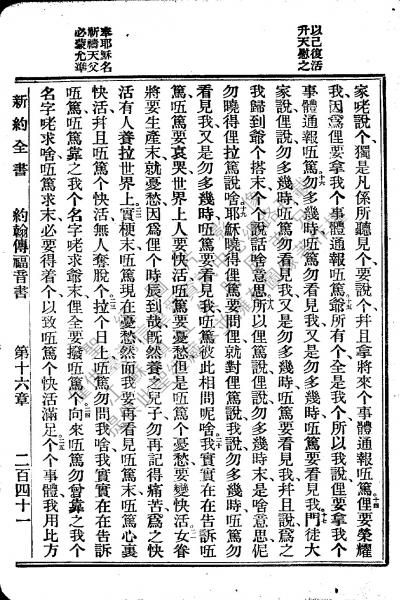 以己復活
升天慰之
奉耶穌名
祈禱天父
必蒙允準
家咾說个獨是凡係所聽見个要說个幷且拿將來个事體通報㕶篤俚要榮耀
我因爲俚要拿我个事體通報㕶篤爺所有个全是我个所以我說俚要拿我个
事體通報㕶篤勿多幾時㕶篤勿看見我又是勿多幾時㕶篤要看見我門徒大
家說俚說勿多幾時㕶篤勿看見我又是勿多幾時㕶篤要看見我幷且說爲之
我歸到爺个搭末个个說話啥意思所以俚篤說俚說勿多幾時末是啥意思伲
勿曉得俚拉篤說啥耶穌曉得俚篤要問俚就對俚篤說我說勿多幾時㕶篤勿
看見我又是勿多幾時㕶篤要看見我㕶篤彼此相問呢啥我實實在在告訴㕶
篤㕶篤要哀哭世界上人要快活㕶篤要憂愁但是㕶篤个憂愁要變快活女眷
將要生產末就憂愁因爲俚个時辰到哉旣然養之兒子勿再記得痛苦爲之快
活有人養拉世界上實梗末㕶篤現在憂愁然而我要再看見㕶篤末㕶篤心裏
快活幷且㕶篤个快活無人奪脫个拉个日上㕶篤勿問我啥我實實在在告訴
㕶篤㕶篤靠之我个名字咾求爺末俚全要撥㕶篤个向來㕶篤勿曾靠之我个
名字咾求啥㕶篤求末必要得着个以致㕶篤个快活滿足个个事體我用比方
新約全書 約翰傳福音書 第十六章 二百四十一